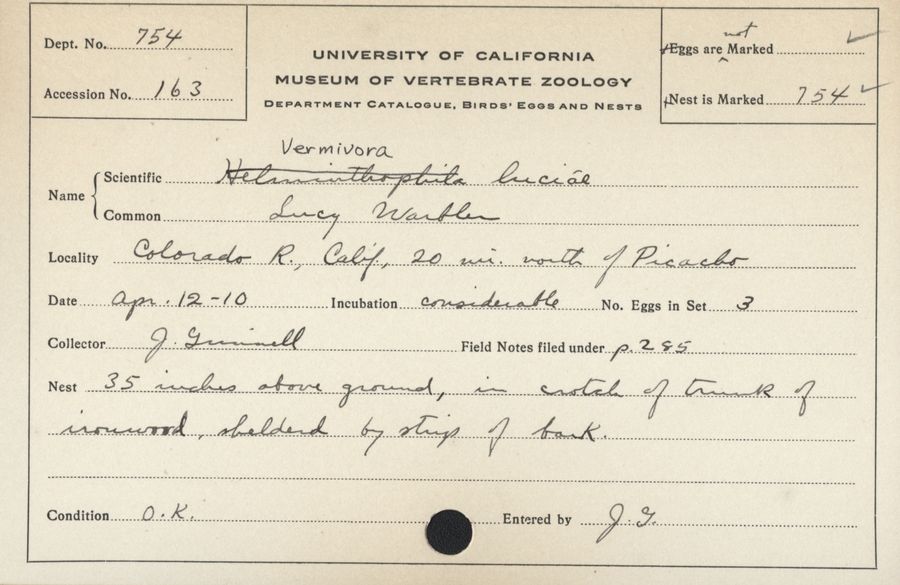 Dept. No. 754
Accession No. 163
UNIVERSITY OF CALIFORNIA
MUSEUM OF VERTEBRATE ZOOLOGY
DEPARTMENT CATALOGUE, BIRDS' EGGS AND NESTS
not
Eggs are ^ Marked ✓
Nest is Marked 754 ✓
Vermivora
Name
Scientific Helminthophila luciae
Common Lucy Warbler
Locality Colorado R., Calif., 20 mi. north of Picacho
Date Apr. 12-10 Incubation considerable No. Eggs in Set 3
Collector J. Grinnell Field Notes filed under p. 285
Nest 35 inches above ground, in crotch of trunk of
ironwood, shelderd by strip of bark.
Condition O.K. Entered by J.G.